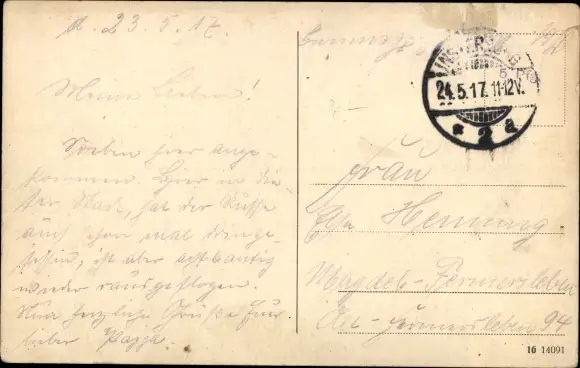 d. 23.5.17.
Meine Lieben!
Soeben hier ange-
kommen. Hier in die-
ser Stadt, hat der Russe
auch schon mal dringe-
sessen, ist aber achtkantig
wieder rausgeflogen.
Nun herzliche Grüße Euer
lieber Pappa.
INSTERBURG
24.5.17. 11-12V.
* 2 a
Frau
Hennung
Magdeb-Fermersleben
Alt-Fermersleben 94
16 14091